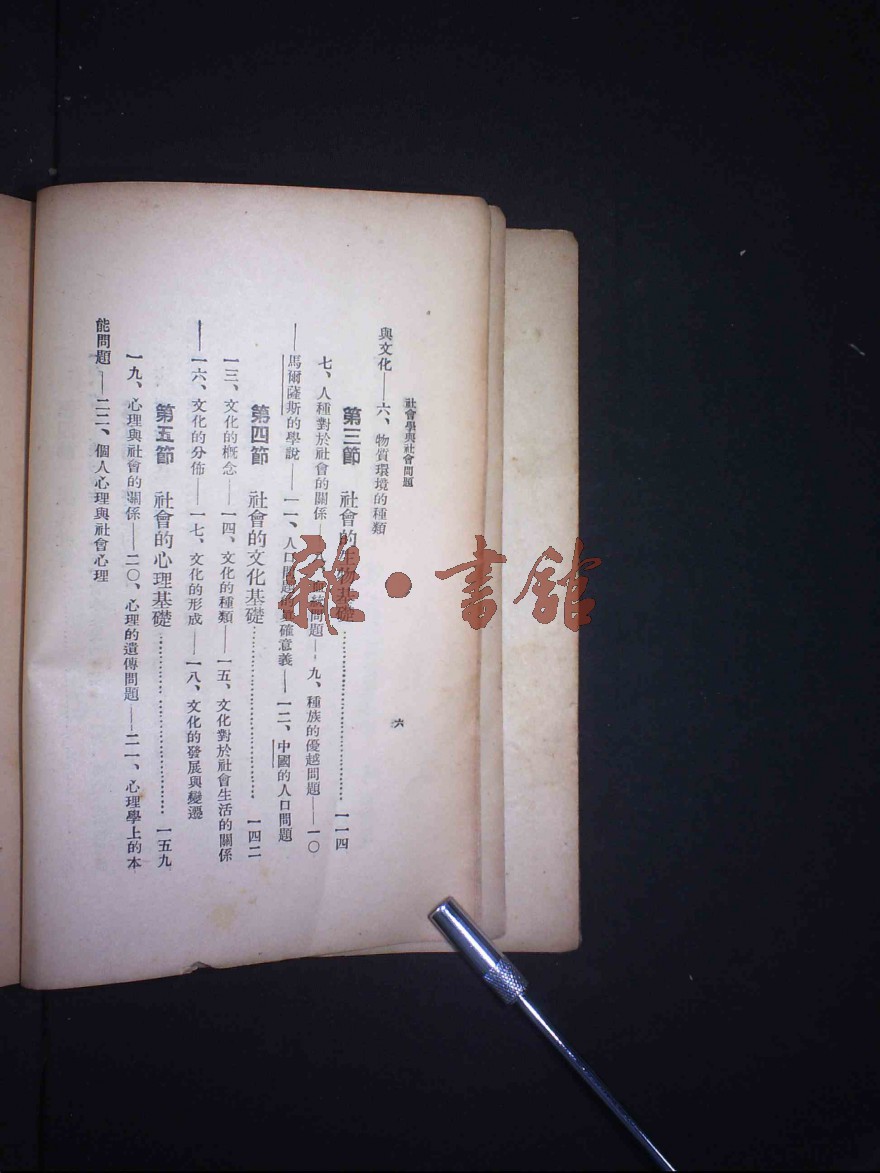 社會學與社會問題
六
與文化——六、物質環境的種類
第三節 社會的生物基礎 一一四
七、人種對於社會的關係——八、血統問題——九、種族的優越問題——一〇
——馬爾薩斯的學說——一一、人口問題的真確意義——一二、中國的人口問題
第四節 社會的文化基礎 一四二
一三、文化的概念——一四、文化的種類——一五、文化對於社會生活的關係
——一六、文化的分佈——一七、文化的形成——一八、文化的發展與變遷
第五節 社會的心理基礎 一五九
一九、心理與社會的關係——二〇、心理的遺傳問題——二一、心理學上的本
能問題——二二、個人心理與社會心理
雜·書館